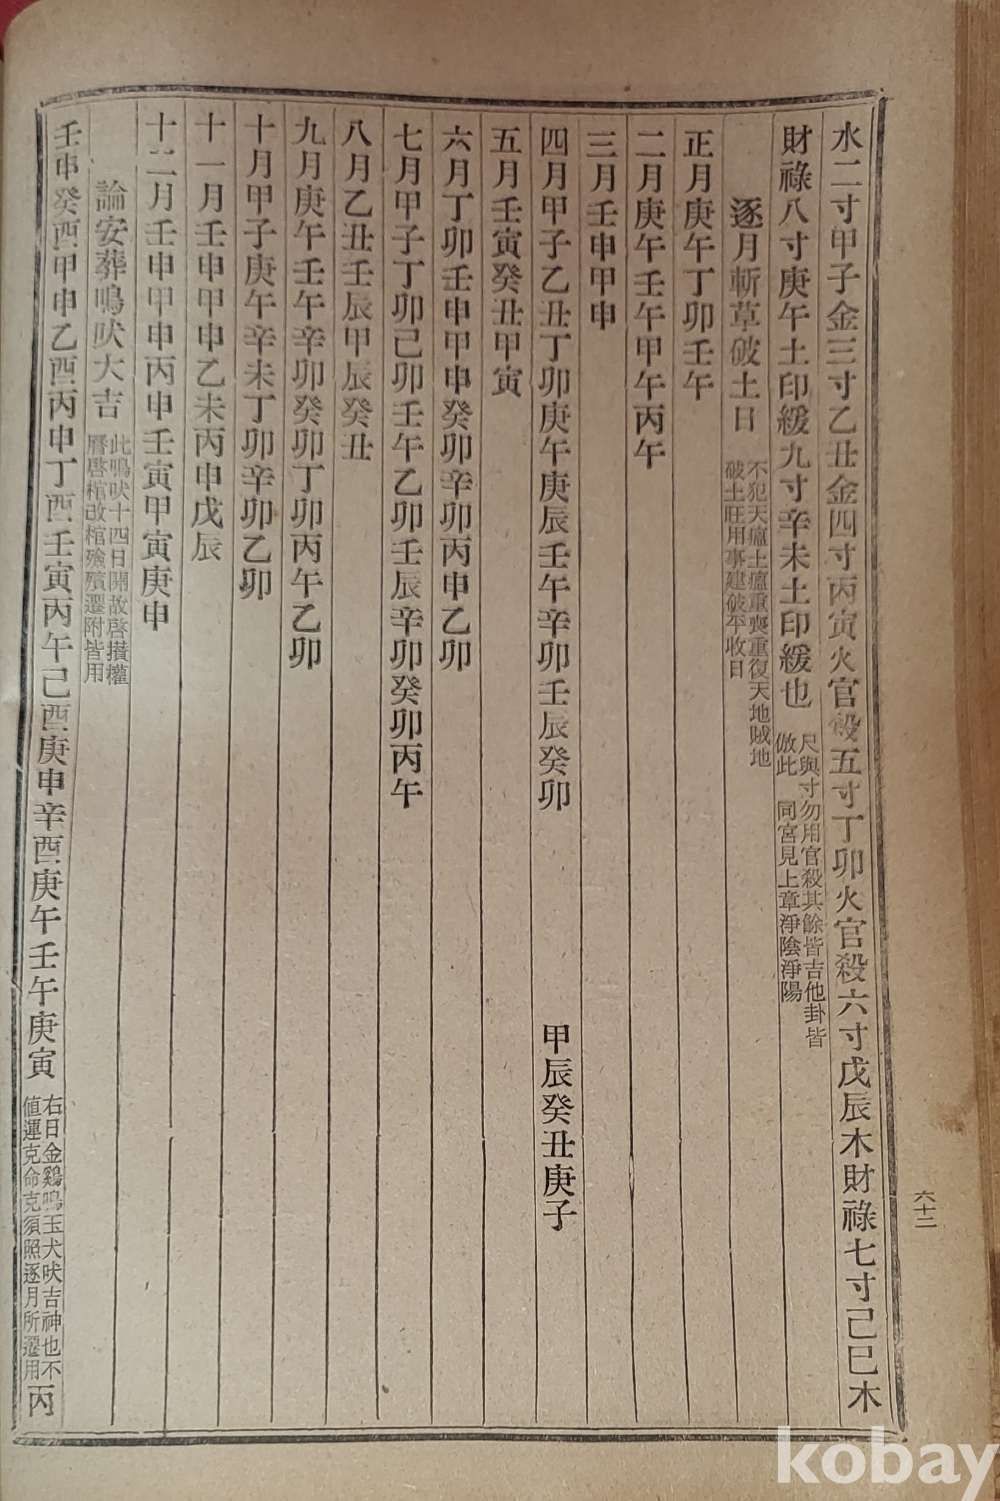 水二寸甲子金三寸乙丑金四寸丙寅火官殺五寸丁卯火官殺六寸戊辰木財祿七寸己巳木
財祿八寸庚午土印綬九寸辛未土印綬也
尺與寸勿用官殺其餘皆吉他卦皆
倣此 同宮見上章淨陰淨陽
逐月斬草破土日
不犯天瘟土瘟重喪重復天地賊地
破土旺用事建破平收日
正月庚午丁卯壬午
二月庚午壬午甲午丙午
三月壬申甲申
四月甲子乙丑丁卯庚午庚辰壬午辛卯壬辰癸卯 甲辰癸丑庚子
五月壬寅癸丑甲寅
六月丁卯壬申甲申癸卯辛卯丙申乙卯
七月甲子丁卯己卯壬午乙卯壬辰辛卯癸卯丙午
八月乙丑壬辰甲辰癸丑
九月庚午壬午辛卯癸卯丁卯丙午乙卯
十月甲子庚午辛未丁卯辛卯乙卯
十一月壬申甲申乙未丙申戊辰
十二月壬申甲申丙申壬寅甲寅庚申
論安葬鳴吠大吉
此鳴吠十四日開故啓攢權
曆啓棺改棺殮殯遷附皆用
壬申癸酉甲申乙酉丙申丁酉壬寅丙午己酉庚申辛酉庚午壬午庚寅
右日金鷄鳴玉犬吠吉神也不
値運克命克須照逐月所選用
丙
六十二
kobay